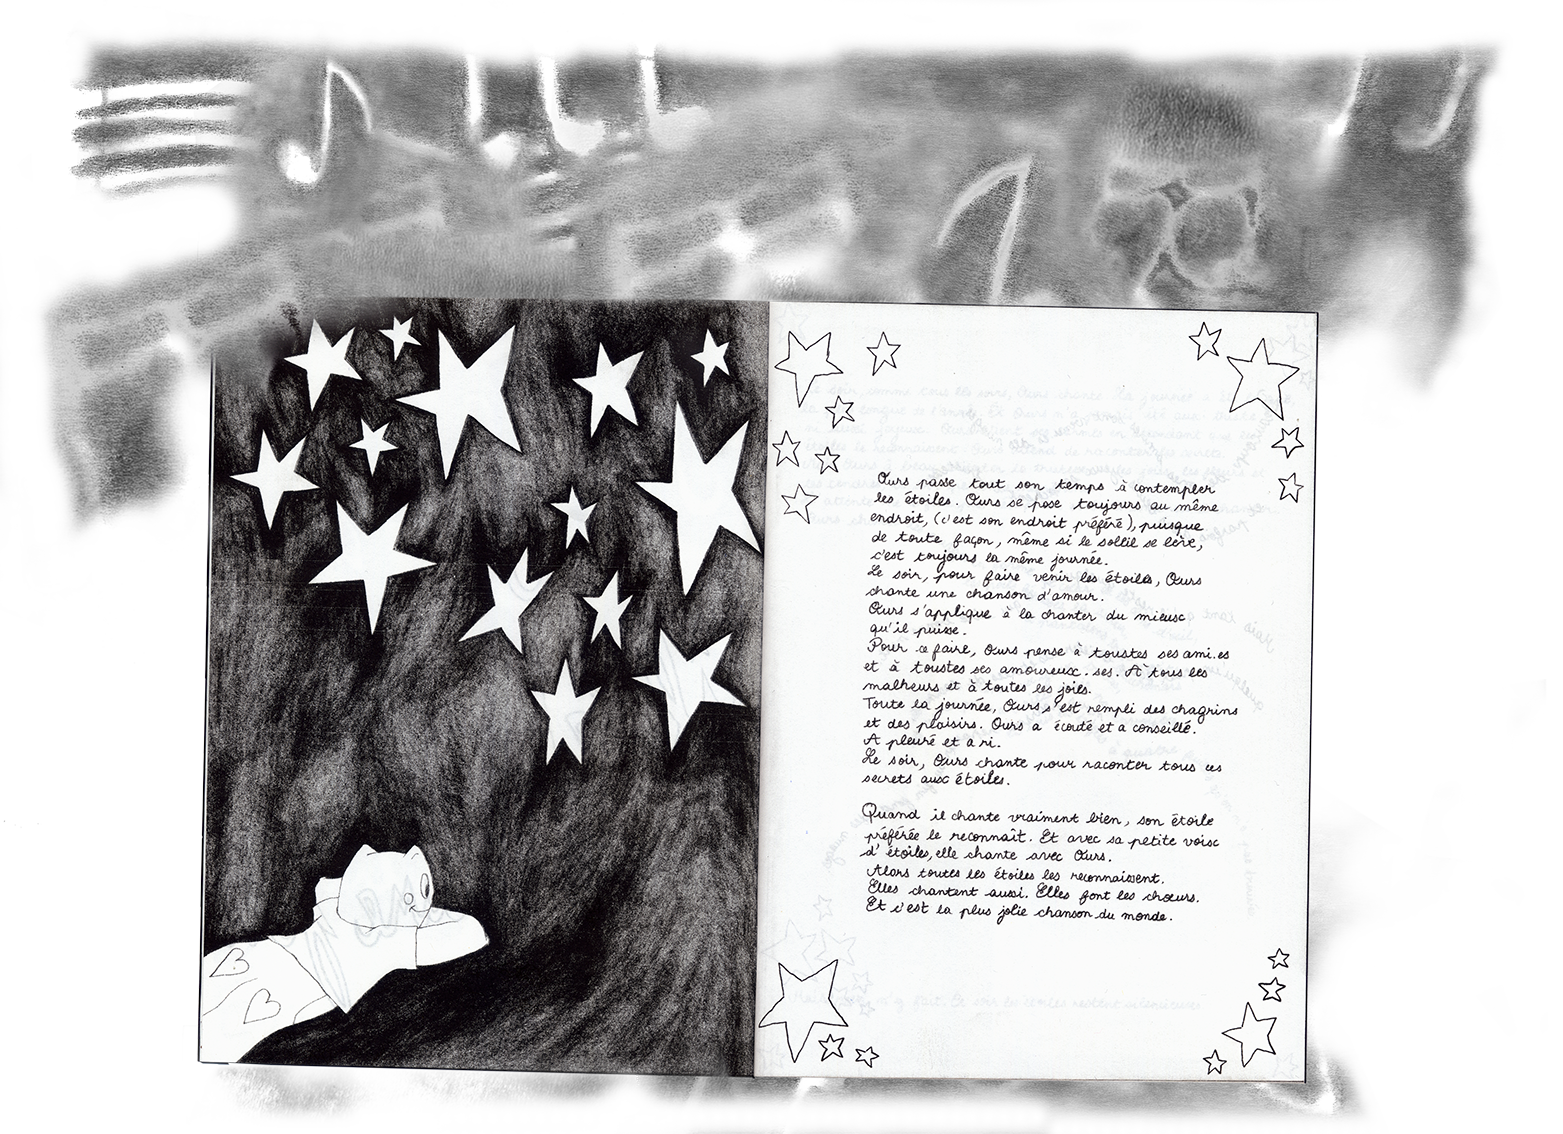 Ours passe tout son temps à contempler
les étoiles. Ours se pose toujours au même
endroit, (c'est son endroit préféré), puisque
de toute façon, même si le soleil se lève,
c'est toujours la même journée.
Le soir, pour faire venir les étoiles, Ours
chante une chanson d'amour.
Ours s'applique à la chanter du mieux
qu'il puisse.
Pour ce faire, Ours pense à toustes ses ami.es
et à toustes ses amoureux.ses. À tous les
malheurs et à toutes les joies.
Toute la journée, Ours s'est rempli des chagrins
et des plaisirs. Ours a écouté et a conseillé.
A pleuré et a ri.
Le soir, Ours chante pour raconter tous ces
secrets aux étoiles.
Quand il chante vraiment bien, son étoile
préférée le reconnaît. Et avec sa petite voix
d'étoiles, elle chante avec Ours.
Alors toutes les étoiles les reconnaissent.
Elles chantent aussi. Elles font les chœurs.
Et c'est la plus jolie chanson du monde.